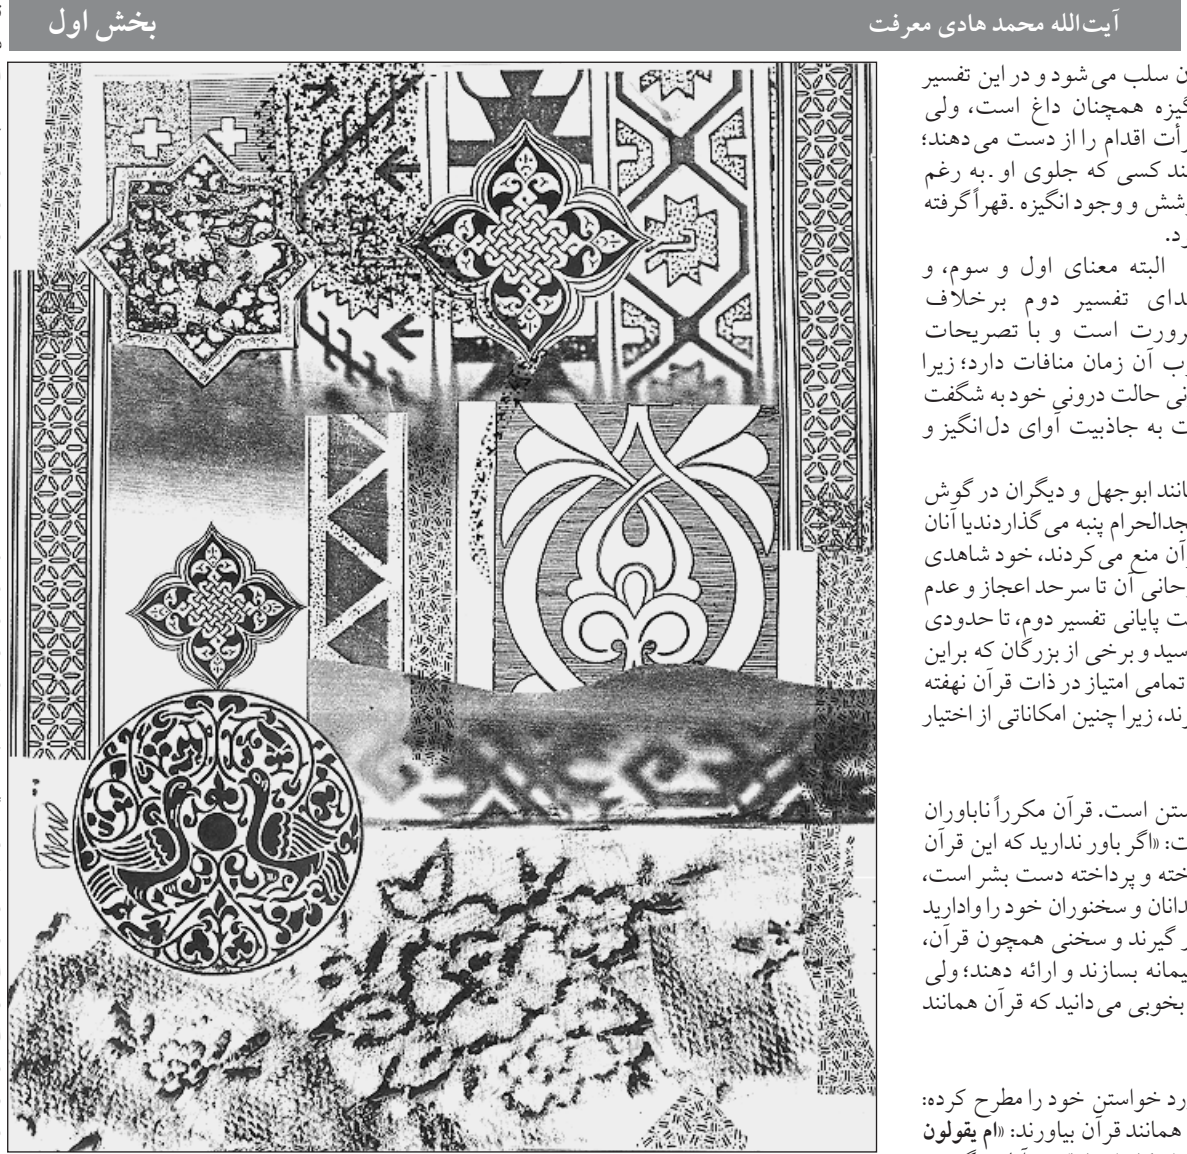 آیت‌الله محمد هادی معرفت
بخش اول
سلب می‌شود و در این تفسیر
همچنان داغ است، ولی
اقدام را از دست می‌دهند؛
کسی که جلوی او ـ به رغم
و وجود انگیزه ـ قهراً گرفته
البته معنای اول و سوم، و
تفسیر دوم برخلاف
است و با تصریحات
آن زمان منافات دارد؛ زیرا
حالت درونی خود به شگفت
به جاذبیت آوای دل‌انگیز و
ابوجهل و دیگران در گوش
پنبه می‌گذاردند یا آنان
منع می‌کردند، خود شاهدی
آن تا سرحد اعجاز و عدم
پایانی تفسیر دوم، تا حدودی
و برخی از بزرگان که براین
تمامی امتیاز در ذات قرآن نهفته
زیرا چنین امکاناتی از اختیار
است. قرآن مکرراً ناباوران
«اگر باور ندارید که این قرآن
و پرداخته دست بشر است،
و سخنوران خود را وادارید
گیرند و سخنی همچون قرآن،
بسازند و ارائه دهند؛ ولی
بخوبی می‌دانید که قرآن همانند
خواستن خود را مطرح کرده:
همانند قرآن بیاورند: «ام یقولون